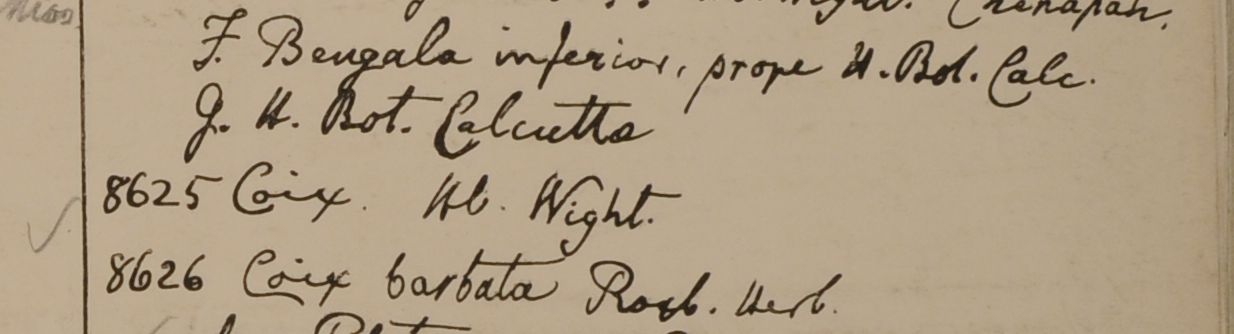 Chenapan.
F. Bengala inferior, prope H. Bot. Calc.
G. H. Bot. Calcutta
8625 Coix. Hb. Wight.
8626 Coix barbata Roxb. Herb.